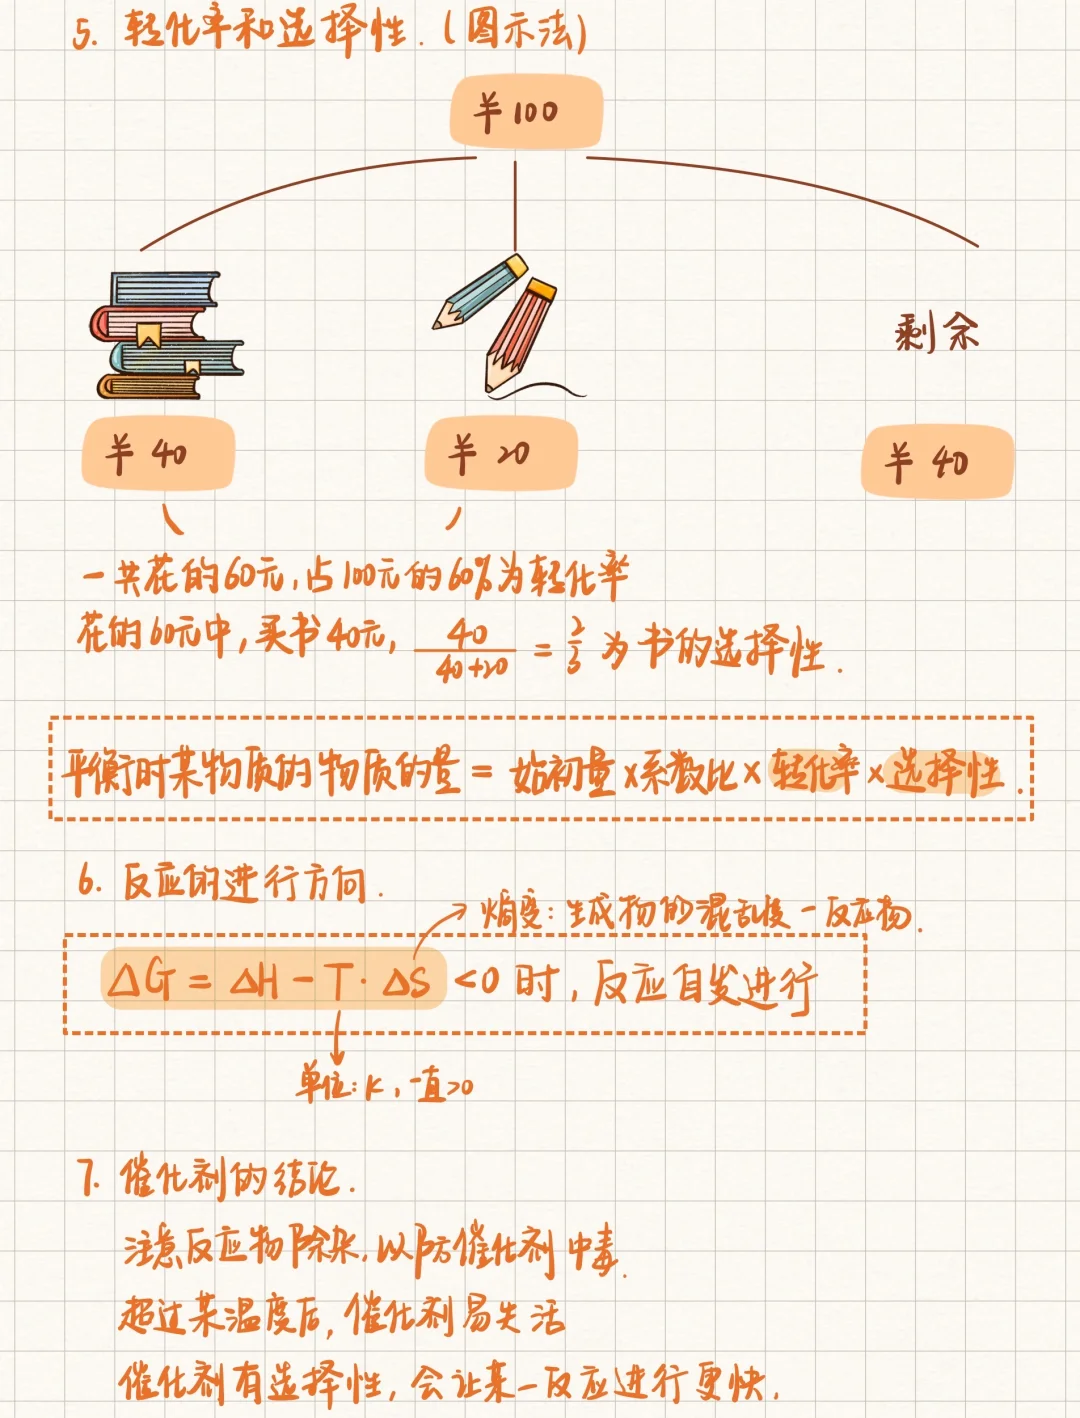 5. 转化率和选择性.(图示法)
¥100
剩余
¥ 40
¥ 20
¥ 40
一共花的60元,占100元的60%为转化率
花的60元中,买书40元, 40/(40+20) = 2/3 为书的选择性.
平衡时某物质的物质的量 = 始初量×系数比×转化率×选择性.
6. 反应的进行方向.
熵变:生成物的混乱度-反应物.
△G = △H - T·△S <0 时,反应自发进行
单位:K,一直>0
7. 催化剂的结论.
注意反应物除杂,以防催化剂中毒.
超过某温度后,催化剂易失活
催化剂有选择性,会让某一反应进行更快.